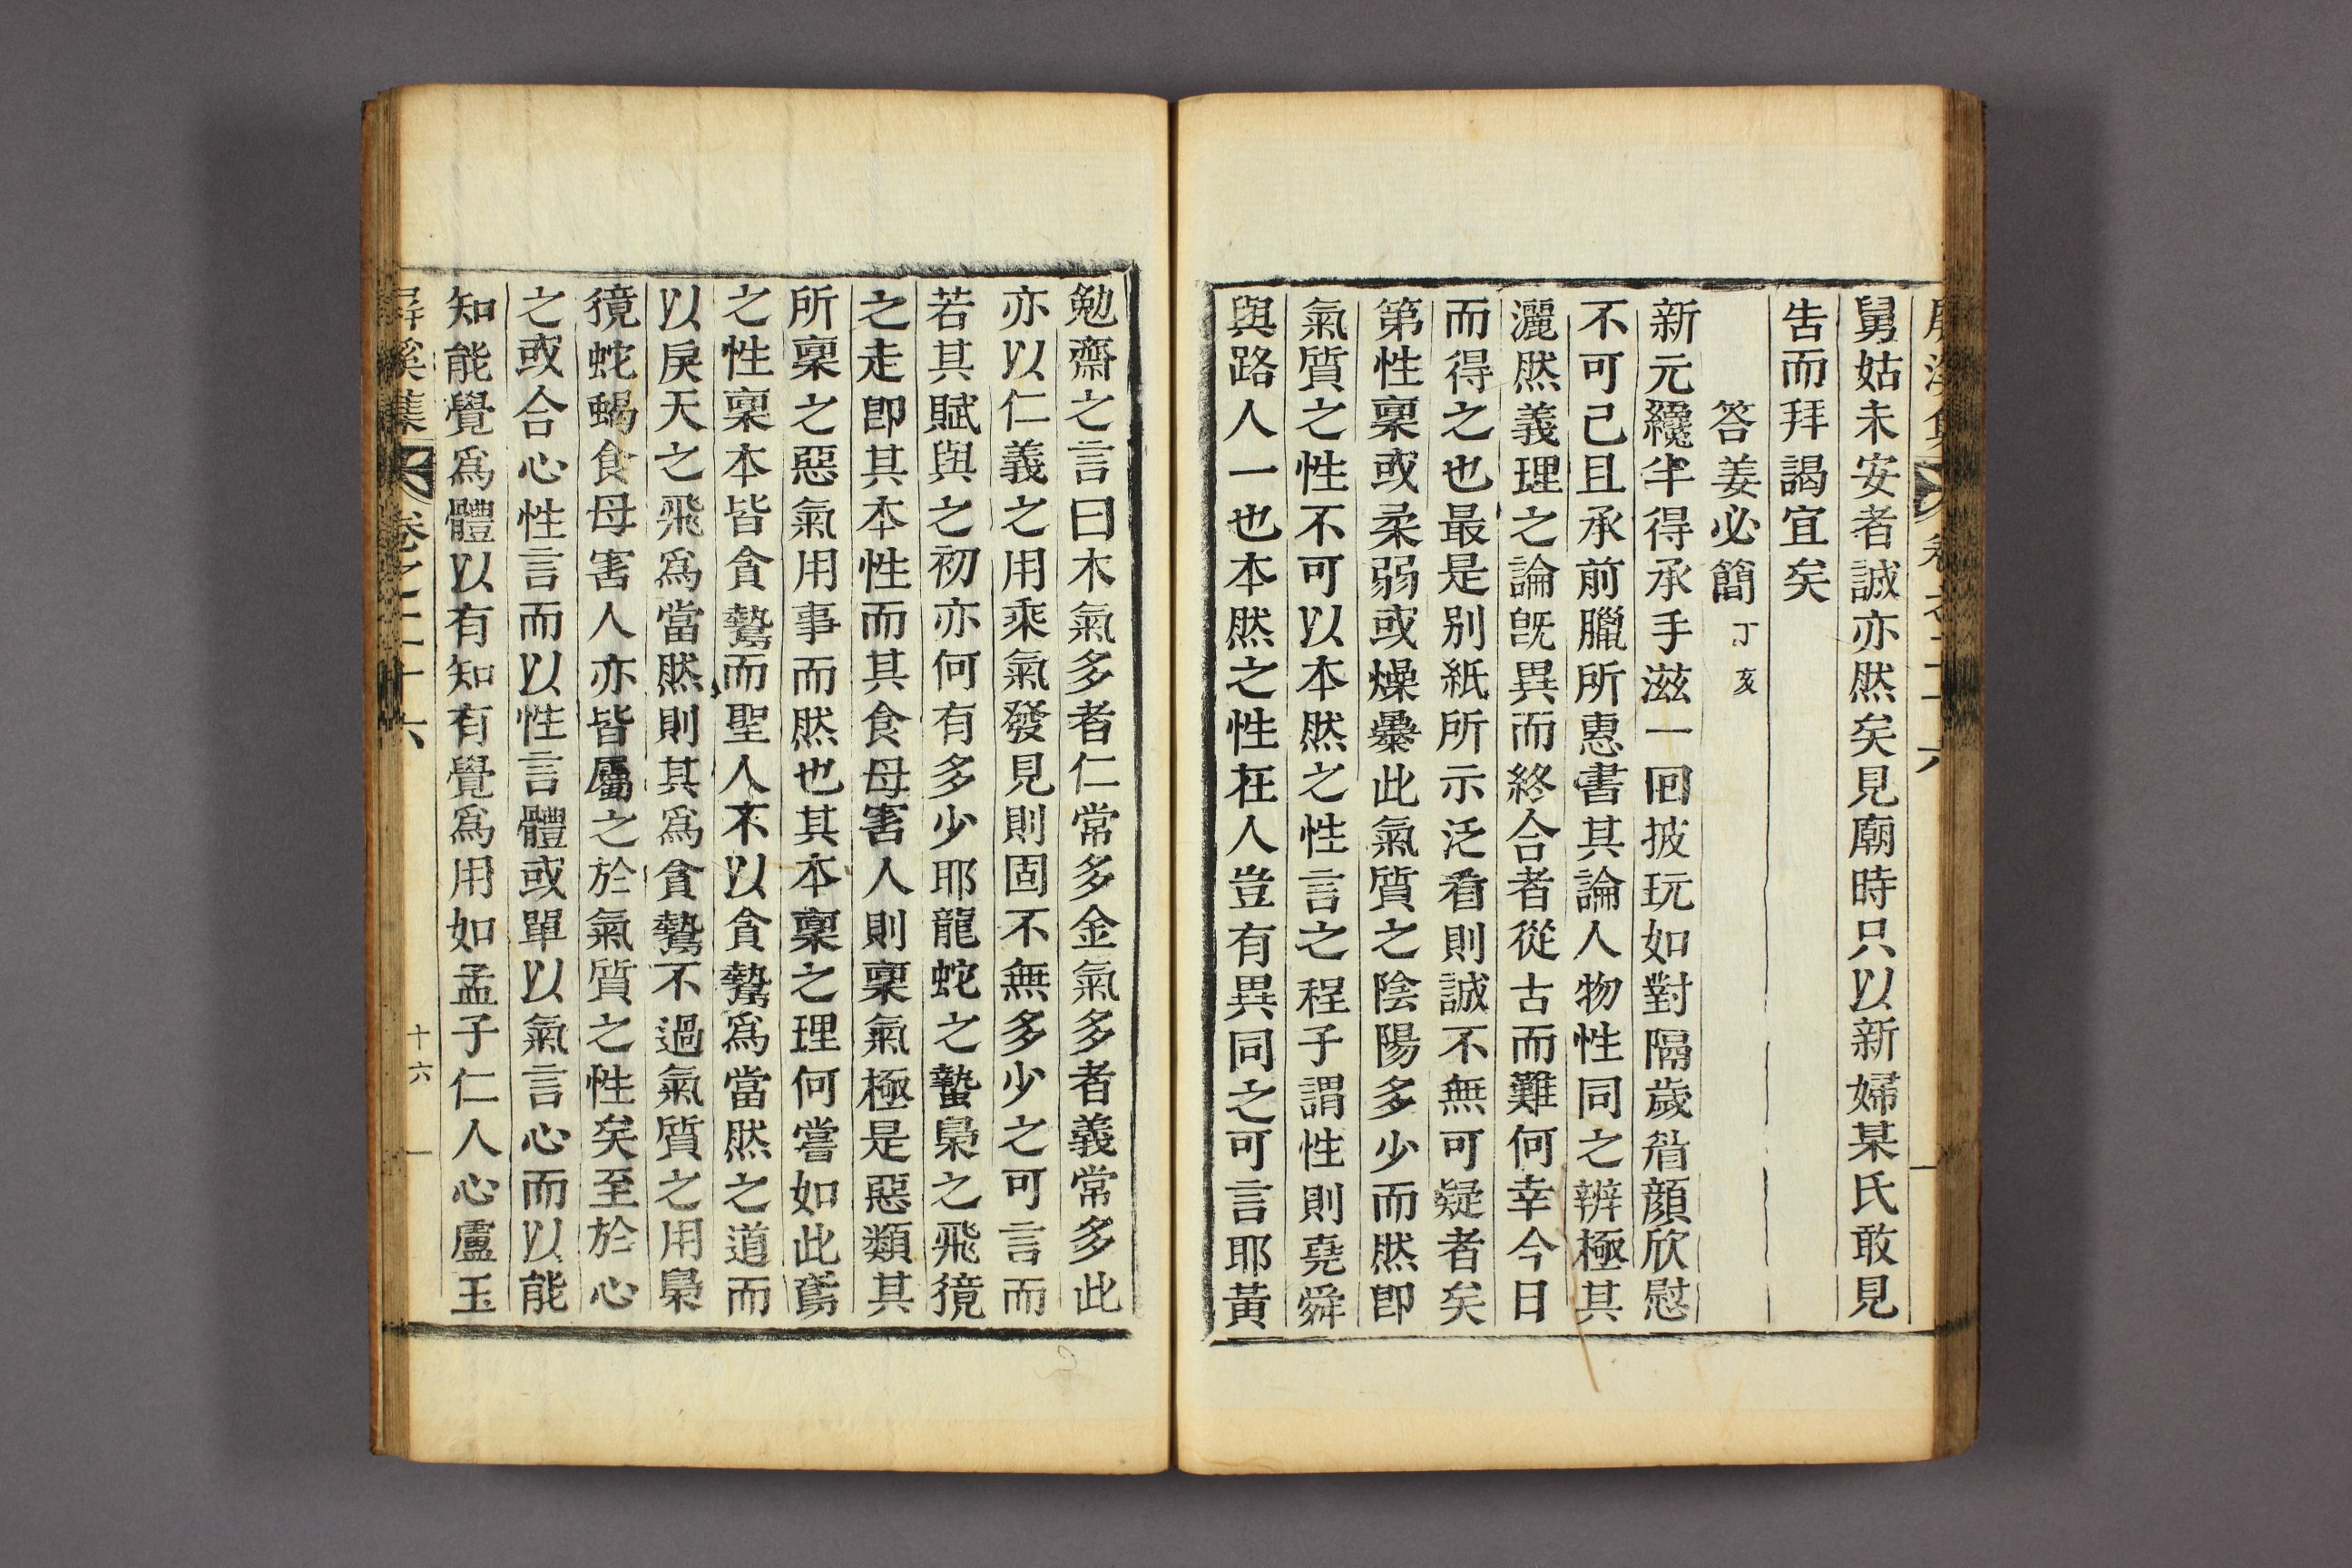 舅姑未安者誠亦然矣見廟時只以新婦某氏敢見
告而拜謁宜矣
答姜必簡丁亥
新元纔半得承手滋一回披玩如對隔歲眉顔欣慰
不可已且承前臘所惠書其論人物性同之辨極其
灑然義理之論旣異而終合者從古而難何幸今日
而得之也最是別紙所示泛看則誠不無可疑者矣
第性稟或柔弱或燥暴此氣質之陰陽多少而然卽
氣質之性不可以本然之性言之程子謂性則堯舜
與路人一也本然之性在人豈有異同之可言耶黃
勉齋之言曰木氣多者仁常多金氣多者義常多此
亦以仁義之用乘氣發見則固不無多少之可言而
若其賦與之初亦何有多少耶龍蛇之蟄梟之飛獍
之走卽其本性而其食母害人則稟氣極是惡類其
所稟之惡氣用事而然也其本稟之理何嘗如此鳶
之性稟本皆貪鷙而聖人不以貪鷙爲當然之道而
以戾天之飛爲當然則其爲貪鷙不過氣質之用梟
獍蛇蝎食母害人亦皆屬之於氣質之性矣至於心
之或合心性言而以性言體或單以氣言心而以能
知能覺爲體以有知有覺爲用如孟子仁人心盧玉
屛溪集 卷之二十六 十六